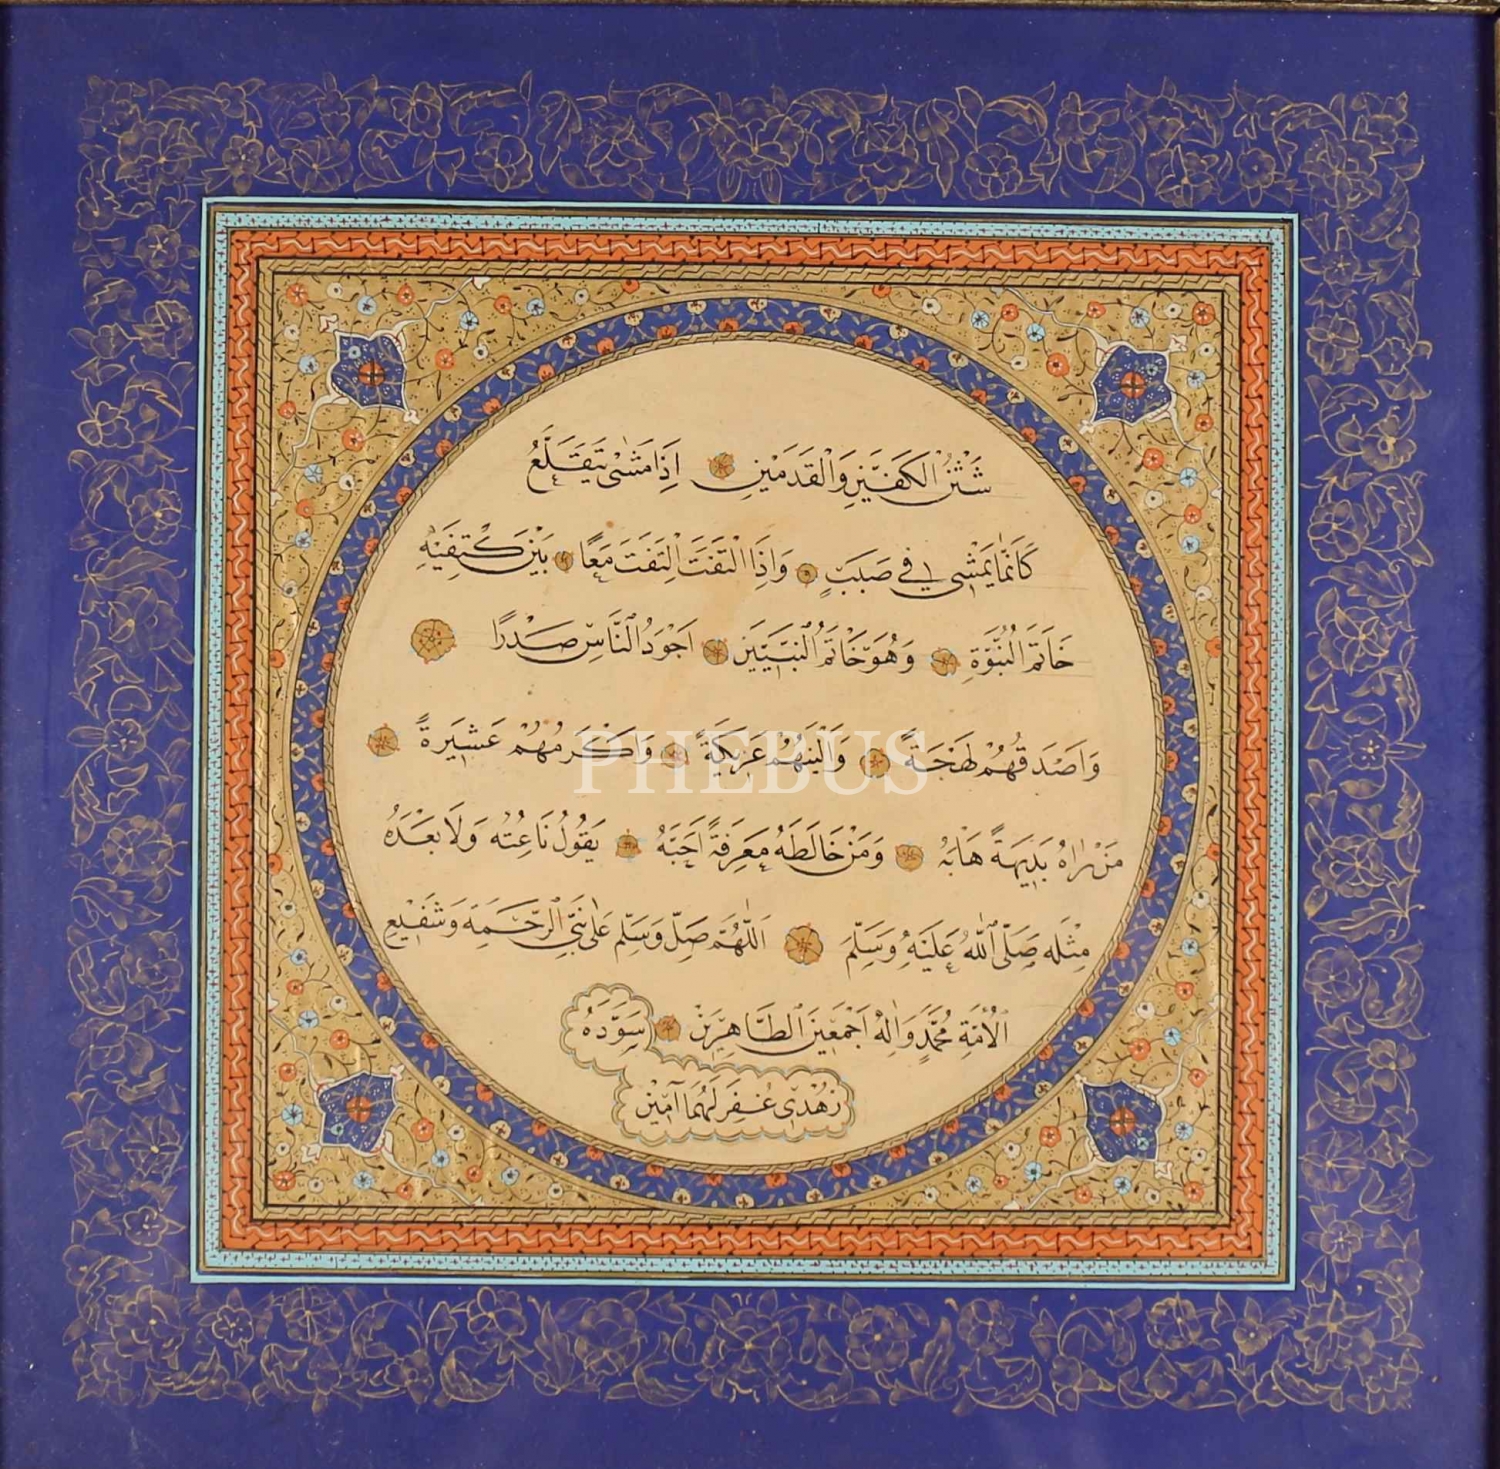 شَثْنُ الْكَفَّيْنِ وَالْقَدَمَيْنِ اِذَا مَشٰى تَقَلَّعَ
كَاَنَّمَا يَمْشِي فِي صَبَبٍ وَاِذَا الْتَفَتَ اِلْتَفَتَ مَعًا بَيْنَ كَتِفَيْهِ
خَاتَمُ النُّبُوَّةِ وَهُوَ خَاتَمُ النَّبِيّينَ اَجْوَدُ النَّاسِ صَدْرًا
وَاَصْدَقُهُمْ لَهْجَةً وَاَلْيَنُهُمْ عَرِيكَةً وَاَكْرَمُهُمْ عَشِيرَةً
مَنْ رَاٰهُ بَدِيهَةً هَابَهُ وَمَنْ خَالَطَهُ مَعْرِفَةً اَحَبَّهُ يَقُولُ نَاعِتُهُ وَلَا بَعْدَهُ
مِثْلَهُ صَلَّى اللّٰهُ عَلَيْهِ وَسَلَّمَ اَللّٰهُمَّ صَلِّ وَسَلِّمْ عَلٰى نَبِيِّ الرَّحْمَةِ وَشَفِيعِ
الْاُمَّةِ مُحَمَّدٍ وَاٰلِهِ اَجْمَعِينَ الطَّاهِرِينَ سَوَّدَهُ
زُهْدِي غُفِرَ لَهُمَا آمِينْ
PHEBUS